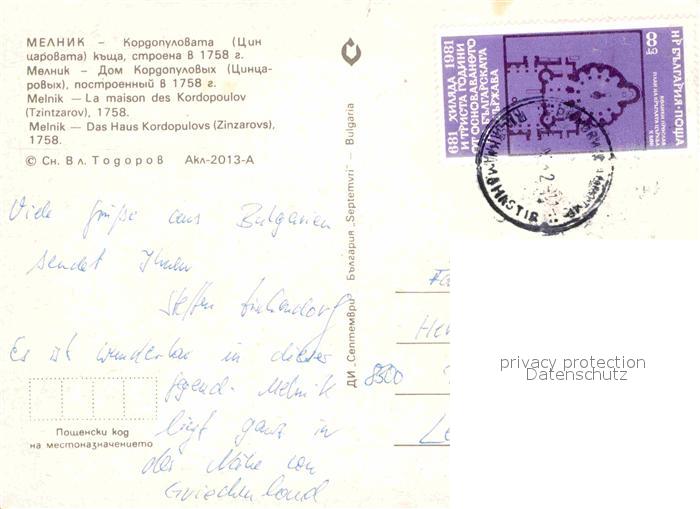 МЕЛНИК – Кордопуловата (Цин
царовата) къща, строена в 1758 г.
Мелник – Дом Кордопуловых (Цинца-
ровых), построенный в 1758 г.
Melnik — La maison des Kordopoulov
(Tzintzarov), 1758.
Melnik — Das Haus Kordopulovs (Zinzarovs),
1758.
© Сн. Вл. Тодоров Акл-2013-А
Viele Grüße aus Bulgarien
sendet Ihnen
Steffen
Es ist wunderbar in dieser
Gegend. Melnik
liegt ganz in
der Nähe von
Griechenland
Пощенски код
на местоназначението
ДИ „Септември" България „Septemvri" — Bulgaria
681 ХИЛЯДА 1981
И ТРИСТА ГОДИНИ
ОТ ОСНОВАВАНЕТО
НА БЪЛГАРСКАТА
ДЪРЖАВА
НР БЪЛГАРИЯ·ПОЩА
8 СТ
Fa
He
8300
Le
privacy protection
Datenschutz